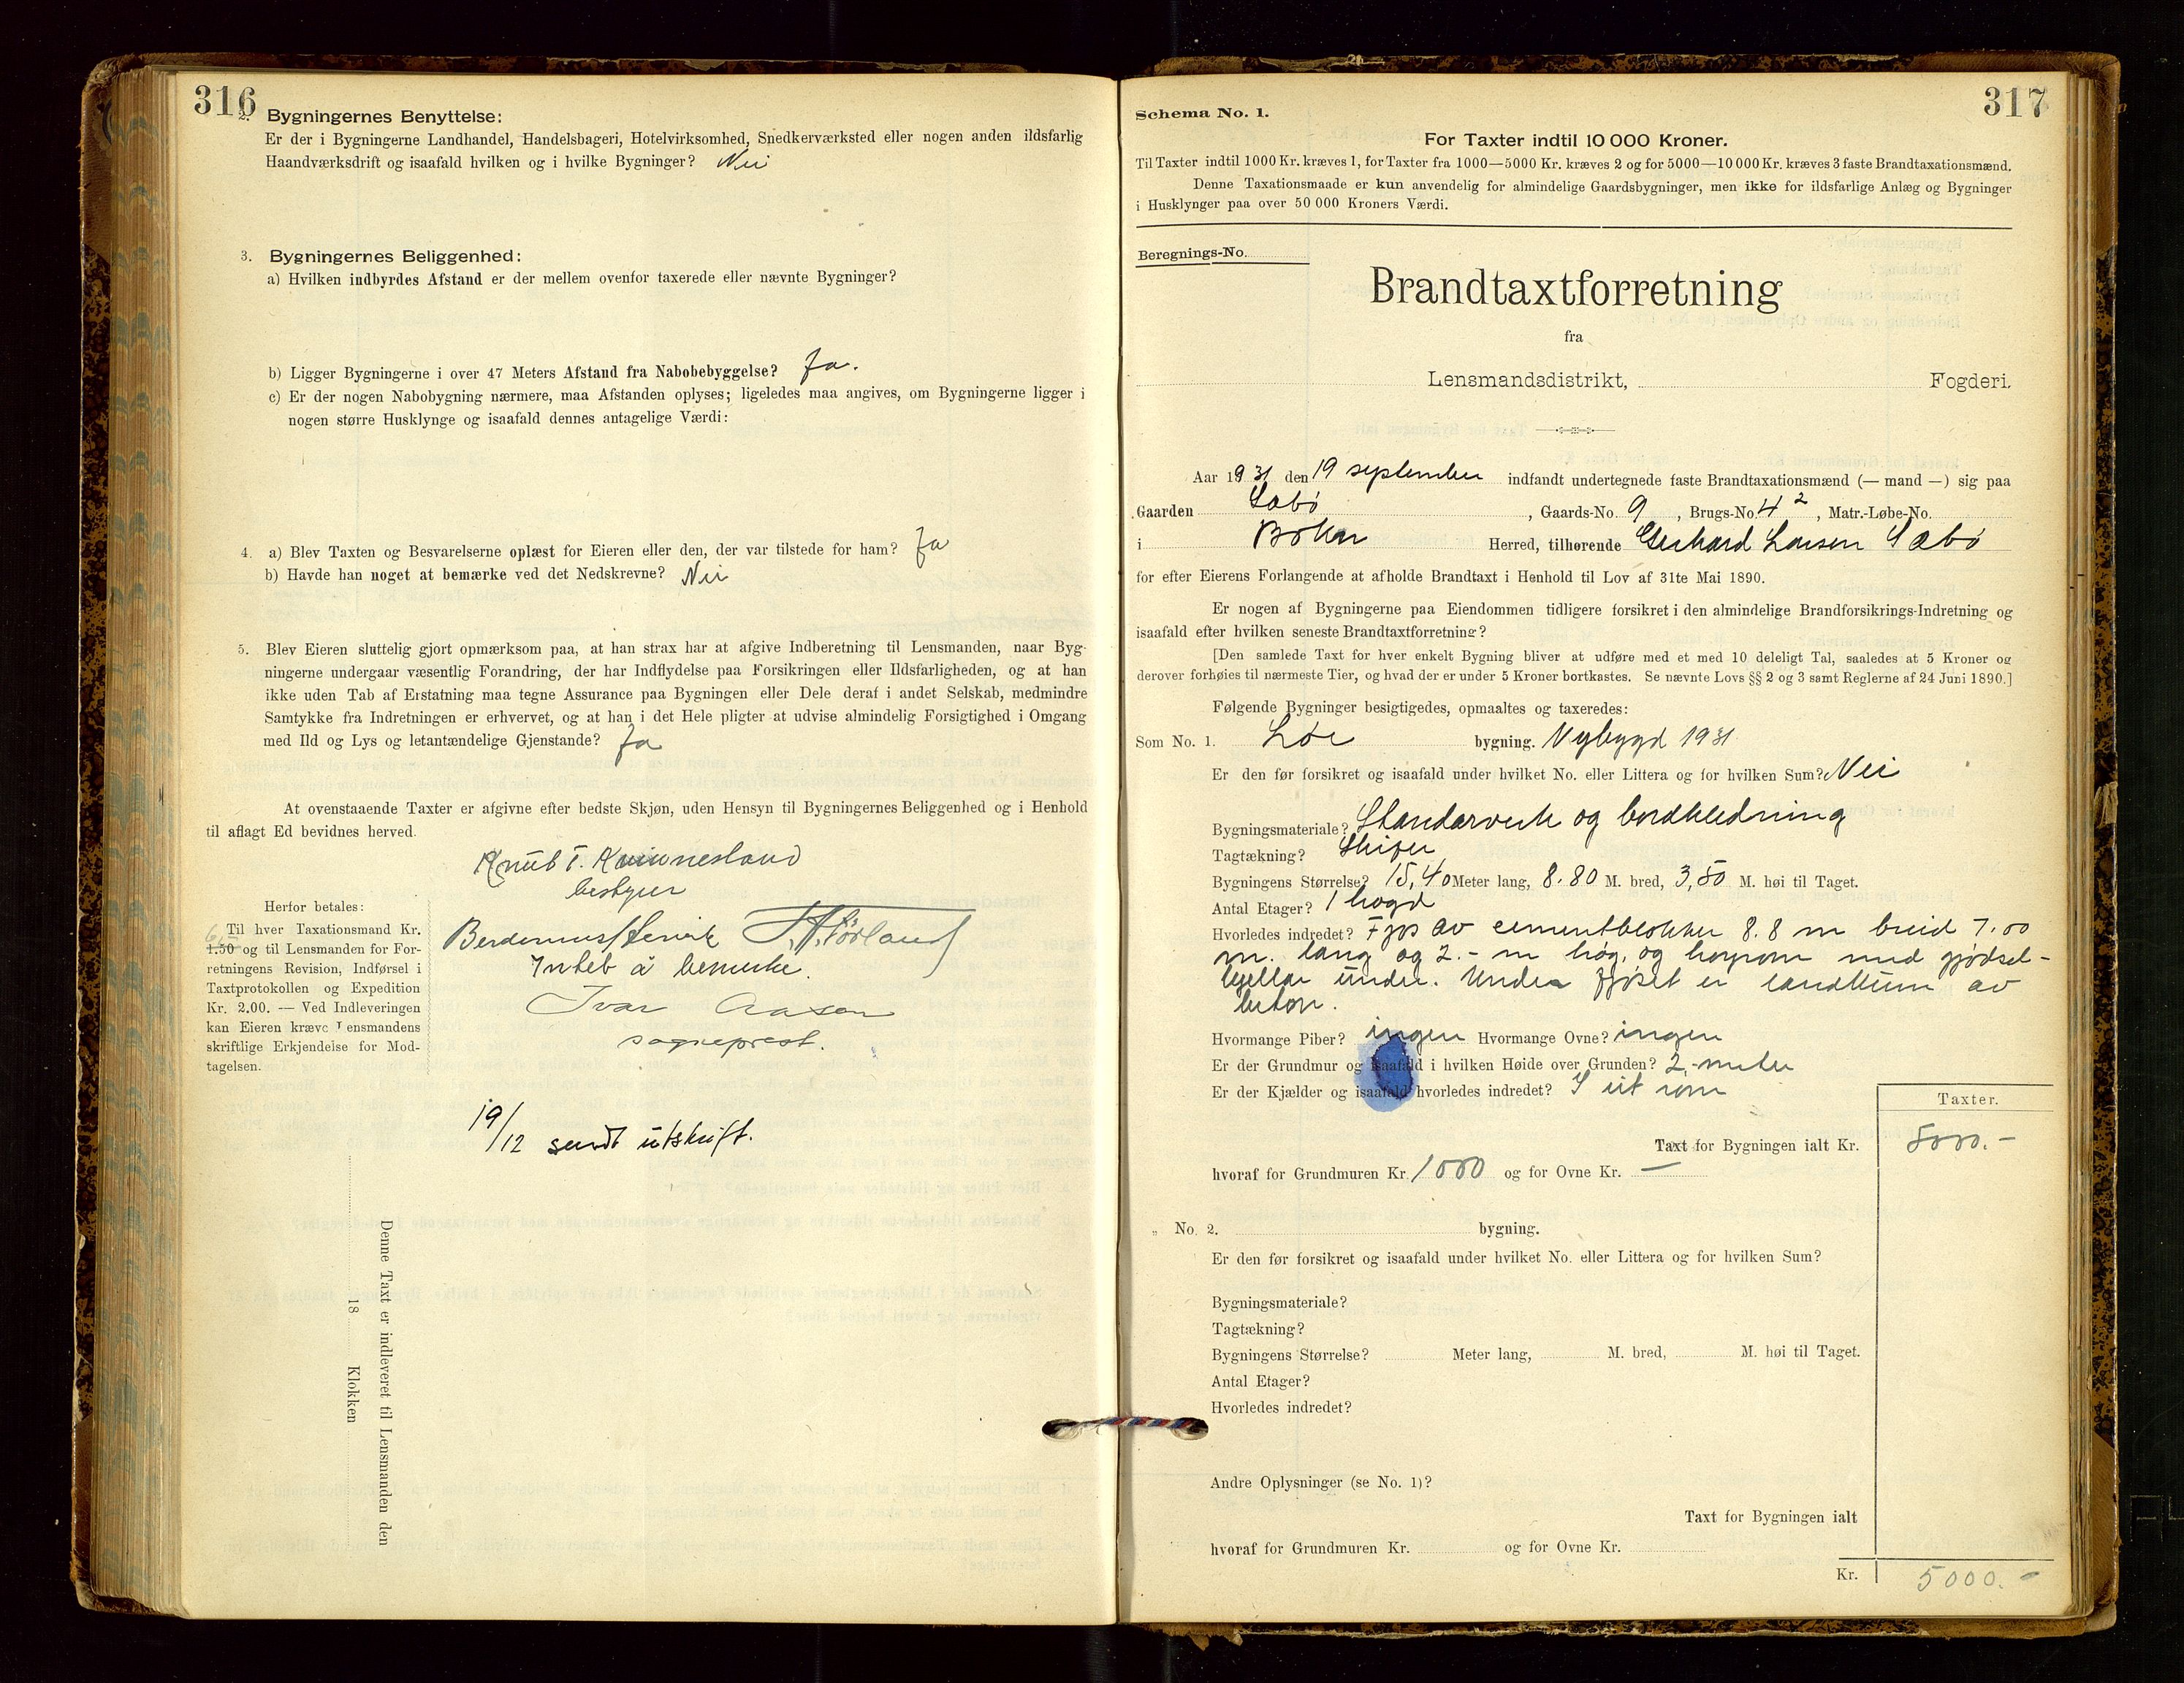 316
2. Bygningernes Benyttelse:
Er der i Bygningerne Landhandel, Handelsbageri, Hotelvirksomhed, Snedkerværksted eller nogen anden ildsfarlig
Haandværksdrift og isaafald hvilken og i hvilke Bygninger? Nei
3. Bygningernes Beliggenhed:
a) Hvilken indbyrdes Afstand er der mellem ovenfor taxerede eller nævnte Bygninger?
b) Ligger Bygningerne i over 47 Meters Afstand fra Nabobebyggelse? Ja.
c) Er der nogen Nabobygning nærmere, maa Afstanden oplyses; ligeledes maa angives, om Bygningerne ligger i
nogen større Husklynge og isaafald dennes antagelige Værdi:
4. a) Blev Taxten og Besvarelserne oplæst for Eieren eller den, der var tilstede for ham? Ja
b) Havde han noget at bemærke ved det Nedskrevne? Nei
5. Blev Eieren sluttelig gjort opmærksom paa, at han strax har at afgive Indberetning til Lensmanden, naar Byg-
ningerne undergaar væsentlig Forandring, der har Indflydelse paa Forsikringen eller Ildsfarligheden, og at han
ikke uden Tab af Erstatning maa tegne Assurance paa Bygningen eller Dele deraf i andet Selskab, medmindre
Samtykke fra Indretningen er erhvervet, og at han i det Hele pligter at udvise almindelig Forsigtighed i Omgang
med Ild og Lys og letantændelige Gjenstande? Ja
At ovenstaaende Taxter er afgivne efter bedste Skjøn, uden Hensyn til Bygningernes Beliggenhed og i Henhold
til aflagt Ed bevidnes herved.
Knut T. Kvinnesland
bestyrer
Intet å bemerke.
Ivar Aasen
sogneprest.
Herfor betales:
Til hver Taxationsmand Kr.
1.50 og til Lensmanden for For-
retningens Revision, Indførsel i
Taxtprotokollen og Expedition
Kr. 2.00. — Ved Indleveringen
kan Eieren kræve Lensmandens
skriftlige Erkjendelse for Mod-
tagelsen.
19/12 sendt utskrift.
Denne Taxt er indleveret til Lensmanden den
18 Klokken
317
Schema No. 1.
For Taxter indtil 10 000 Kroner.
Til Taxter indtil 1000 Kr. kræves 1, for Taxter fra 1000—5000 Kr. kræves 2 og for 5000—10 000 Kr. kræves 3 faste Brandtaxationsmænd.
Denne Taxationsmaade er kun anvendelig for almindelige Gaardsbygninger, men ikke for ildsfarlige Anlæg og Bygninger
i Husklynger paa over 50 000 Kroners Værdi.
Beregnings-No.
Brandtaxtforretning
fra
Lensmandsdistrikt, Fogderi.
Aar 1931 den 19 september indfandt undertegnede faste Brandtaxationsmænd (— mand —) sig paa
Gaarden Sæbø, Gaards-No. 9, Brugs-No. 4 2, Matr.-Løbe-No.
i Bokn Herred, tilhørende Gerhard Larsen Sæbø
for efter Eierens Forlangende at afholde Brandtaxt i Henhold til Lov af 31te Mai 1890.
Er nogen af Bygningerne paa Eiendommen tidligere forsikret i den almindelige Brandforsikrings-Indretning og
isaafald efter hvilken seneste Brandtaxtforretning?
[Den samlede Taxt for hver enkelt Bygning bliver at udføre med et med 10 deleligt Tal, saaledes at 5 Kroner og
derover forhøies til nærmeste Tier, og hvad der er under 5 Kroner bortkastes. Se nævnte Lovs §§ 2 og 3 samt Reglerne af 24 Juni 1890.]
Følgende Bygninger besigtigedes, opmaaltes og taxeredes:
Som No. 1. Løe bygning. Nybygd 1931
Er den før forsikret og isaafald under hvilket No. eller Littera og for hvilken Sum? Nei
Bygningsmateriale? Standarverk og bordkledning
Tagtækning? Skifer
Bygningens Størrelse? 15,40 Meter lang, 8.80 M. bred, 3,50 M. høi til Taget.
Antal Etager? 1 høgd
Hvorledes indredet? Fjøs av cementblokker 8.8 m breid 7.00
m. lang og 2.- m høg, og høyrom med gjødsel-
kjellar under. Under fjøset er landkum av
beton.
Hvormange Piber? ingen Hvormange Ovne? ingen
Er der Grundmur og isaafald i hvilken Høide over Grunden? 2,- meter
Er der Kjælder og isaafald hvorledes indredet? I eit rom
Taxter.
Taxt for Bygningen ialt Kr. 5000.-
hvoraf for Grundmuren Kr. 1000 og for Ovne Kr. —
„ No. 2. bygning.
Er den før forsikret og isaafald under hvilket No. eller Littera og for hvilken Sum?
Bygningsmateriale?
Tagtækning?
Bygningens Størrelse? Meter lang, M. bred, M. høi til Taget.
Antal Etager?
Hvorledes indredet?
Andre Oplysninger (se No. 1)?
Taxt for Bygningen ialt
hvoraf for Grundmuren Kr. og for Ovne Kr.
Kr. 5000.-